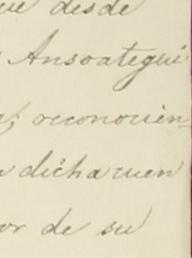 ue desde
Ansoategui
a; reconocien-
dicha cuen
or de su